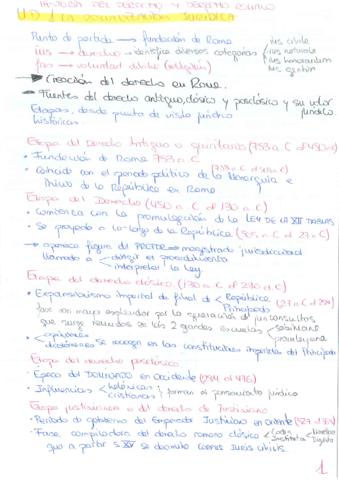 HISTORIA DEL DERECHO Y DERECHO ROMANO
UD 1 LA ROMANIZACIÓN JURÍDICA
Punto de partida → fundación de Roma
ius → derecho → identifica diversas categorías ius civile
ius naturale
ius honorarium
ius gentium
fas → voluntad divina (religión)
→ Creación del derecho en Roma.
→ Fuentes del derecho antiguo, clásico y posclásico y su valor jurídico
Etapas, desde punto de vista jurídico
históricas
Etapa del Derecho Antiguo o quiritario (753 a.C al 450 a.C)
• Fundación de Roma 753 a.C
• Coincide con el periodo político de la Monarquía e
inicio de la República en Roma
Etapa del Derecho (450 a.C al 130 a.C)
• Comienza con la promulgación de la LEY DE LAS XII TABLAS
• Se proyecta a lo largo de la República (a.C al 27 a.C)
→ aparece figura del PRETOR → magistrado jurisdiccional
llamado a dirigir el procedimiento
interpretar la ley.
Etapa del derecho clásico. (130 a.C al 230 d.C)
• Expansionismo imperial de final de República
Principado (27 a.C al 284)
fase con mayor esplendor por la aportación de jurisconsultos
que surge reunidos en las 2 grandes escuelas sabiniana
proculeyana
• opiniones
dictámenes se recogen en las constituciones imperiales del Principado
Etapa del derecho posclásico.
• Época del DOMINADO en Occidente (284 al 476)
• Influencias helénicas
cristianas forman el pensamiento jurídico
Etapa justinianea o del derecho de Justiniano
• Periodo de gobierno del Emperador Justiniano en oriente (527 al 565)
• Fase compiladora del derecho romano clásico Codex Novelae
Instituta Digesto
que a partir S. XV se denominó CORPUS IURIS CIVILIS.
1